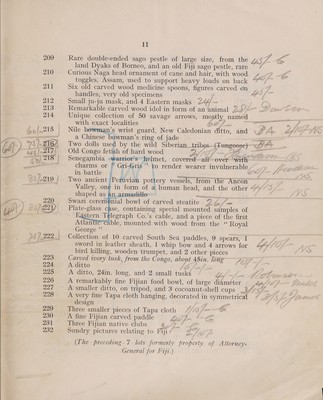 11
209 Rare double-ended sago pestle of large size, from the
land Dyaks of Borneo, and an old Fiji sago pestle, rare
210 Curious Naga head ornament of cane and hair, with wood
toggles, Assam, used to support heavy loads on back
211 Six old carved wood medicine spoons, figures carved on
handles, very old specimens
212 Small ju-ju mask, and 4 Eastern masks 24/-
213 Remarkable carved wood idol in form of an animal
214 Unique collection of 50 savage arrows, mostly named
with exact localities
215 Nile bowman's wrist guard, New Caledonian ditto, and
a Chinese bowman's ring of jade
216 Two dolls used by the wild Siberian Tartars (Tungoose)
217 Old Congo fetish of hard wood
218 Senegambia warrior's helmet, covered all over with
charms or Gri-Gris to render wearer invulnerable
in battle
219 Two ancient Peruvian pottery vessels, from the Ancon
Valley, one in form of a human head, and the other
shaped as an armadillo
220 Swazi ceremonial bowl of carved steatite 26/-
221 Plate-glass case, containing special mounted samples of
Eastern Telegraph Co.'s cable, and a piece of the first
Atlantic cable, mounted with wood from the "Royal
George"
222 Collection of 10 carved South Sea paddles, 9 spears, 1
sword in leather sheath, 1 whip bow and 4 arrows for
bird killing, wooden trumpet, and 2 other pieces
223 Carved ivory tusk, from the Congo, about 48in. long
224 A ditto
225 A ditto, 24in. long, and 2 small tusks
226 A remarkably fine Fijian food bowl, of large diameter
227 A smaller ditto, on tripod, and 3 cocoanut-shell cups
228 A very fine Tapa cloth hanging, decorated in symmetrical
design
229 Three smaller pieces of Tapa cloth
230 A fine Fijian carved paddle
231 Three Fijian native clubs
232 Sundry pictures relating to Fiji
(The preceding 7 lots formerly property of Attorney-
General for Fiji.)